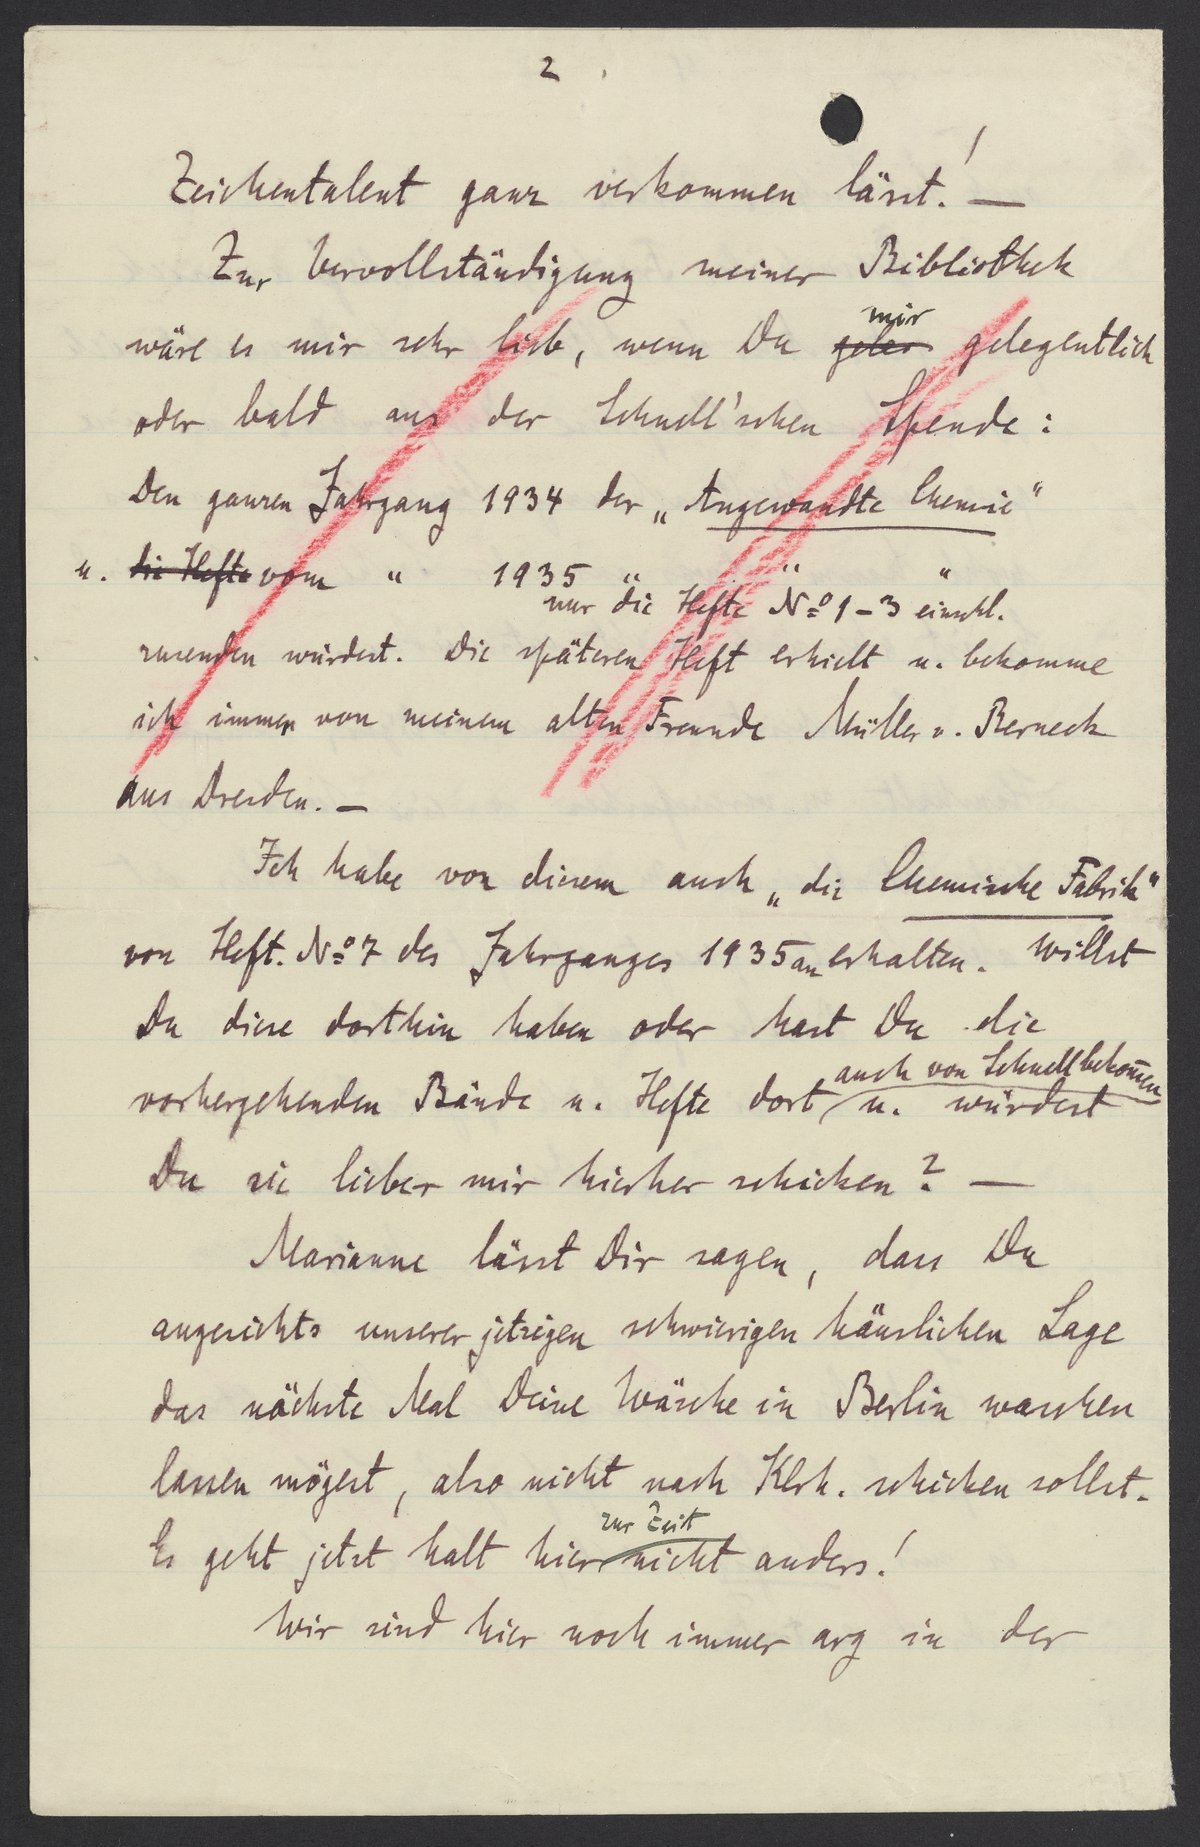 2
Zeichentalent ganz verkommen lässt! —
Zur Vervollständigung meiner Bibliothek
wäre es mir sehr lieb, wenn Du mir gelegentlich
oder bald aus der Schnell'schen Spende:
Den ganzen Jahrgang 1934 der „Angewandte Chemie"
u. die Hefte vom " 1935 " " "
nur die Hefte No 1-3 einschl.
zusenden würdest. Die späteren Heft erhielt u. bekomme
ich immer von meinem alten Freunde Müller v. Berneck
aus Dresden. —
Ich habe von diesem auch „die Chemische Fabrik"
von Heft. No 7 des Jahrganges 1935 an erhalten. Willst
Du diese dorthin haben oder hast Du die
vorhergehenden Bände u. Hefte dort auch von Schnell bekom̅en u. würdest
Du sie lieber mir hierher schicken? —
Marianne lässt Dir sagen, dass Du
angesichts unserer jetzigen schwierigen häuslichen Lage
das nächste Mal Deine Wäsche in Berlin waschen
lassen mögest, also nicht nach Klsh. schicken sollst.
Es geht jetzt halt hier zur Zeit nicht anders!
Wir sind hier noch immer arg in der